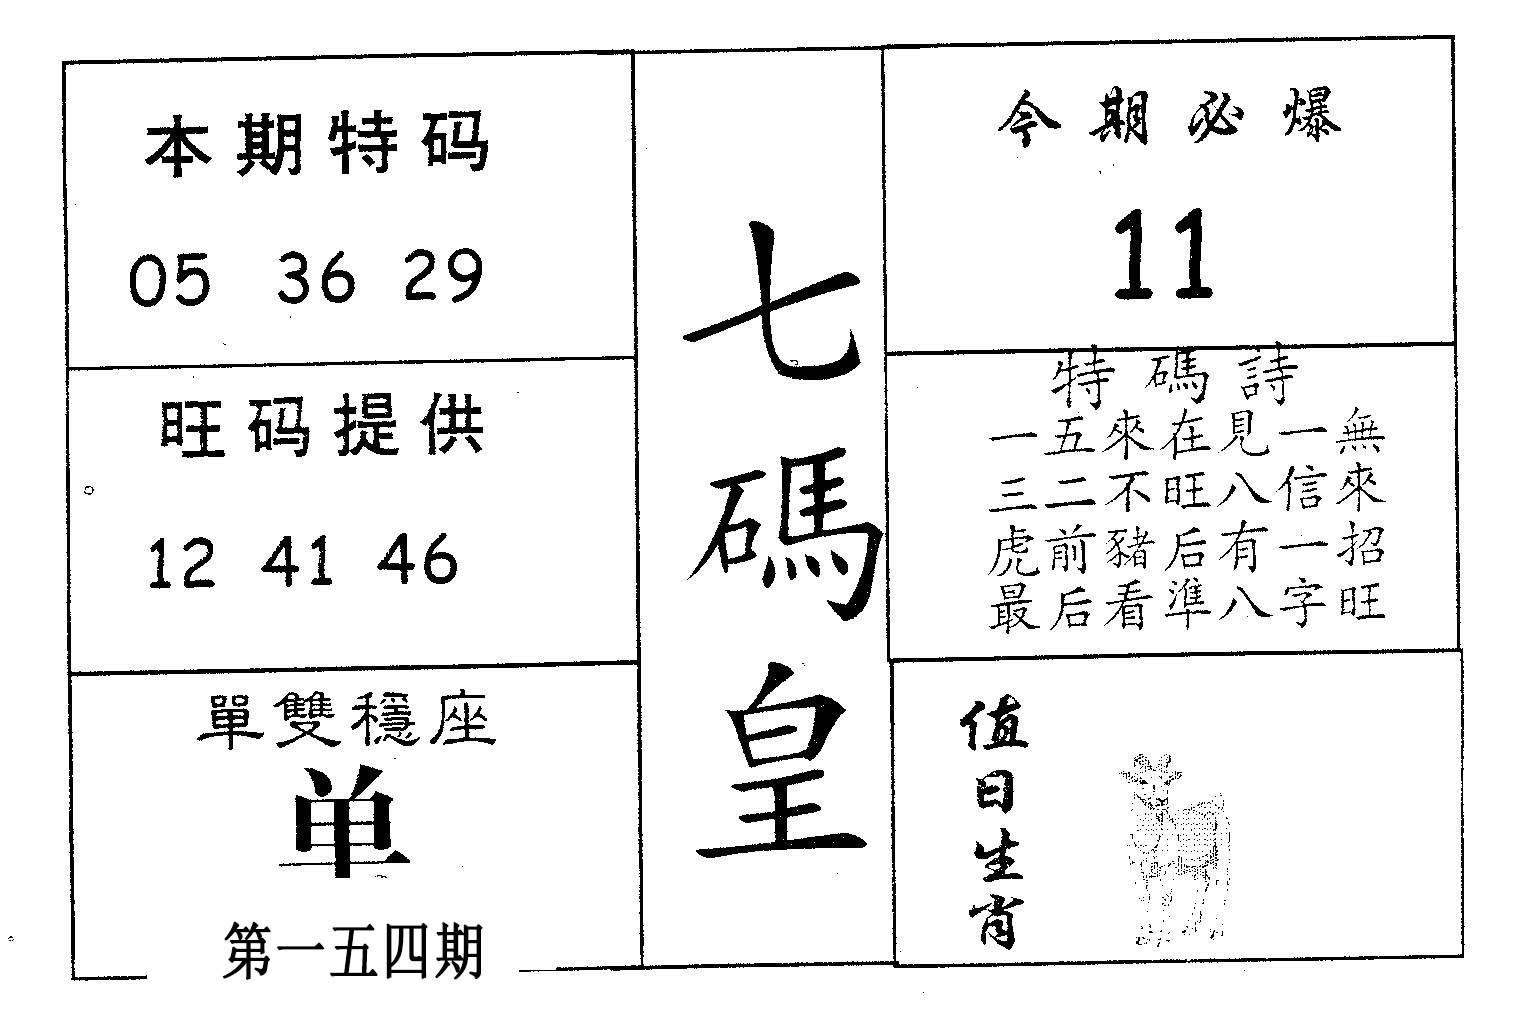 本期特码
05 36 29
旺码提供
12 41 46
單雙穩座
单
第一五四期
七碼皇
今期必爆
11
特碼詩
一五來在見一無
三二不旺八信來
虎前豬后有一招
最后看準八字旺
值日生肖